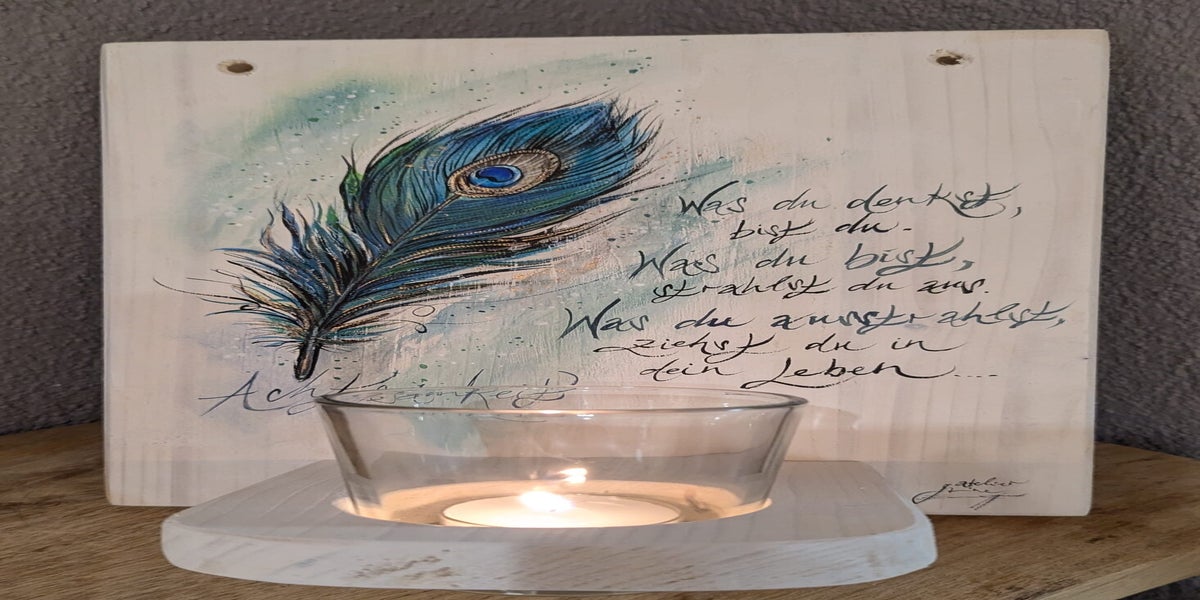 Was du denkst,
bist du.
Was du bist,
strahlst du aus.
Was du ausstrahlst,
ziehst du in
dein Leben....
Achtsamkeit
atelier